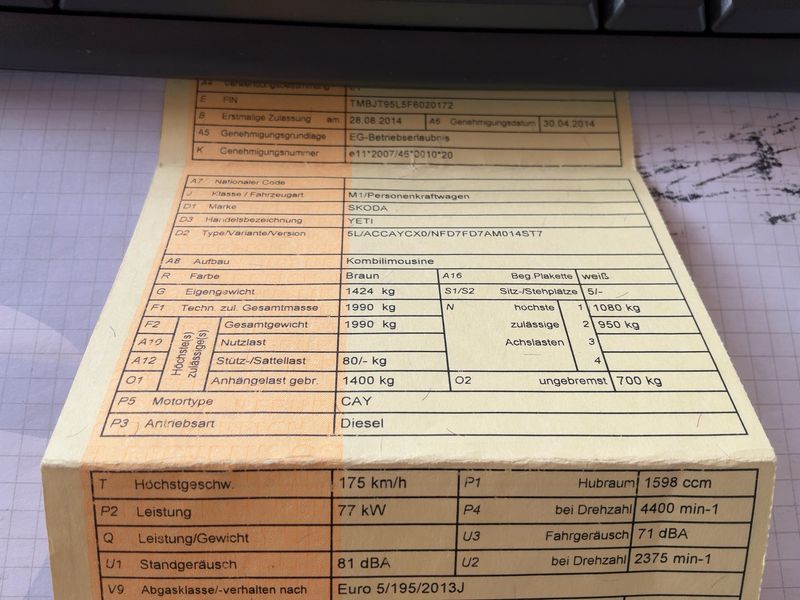 A4 Verwendungsbestimmung 01
E FIN TMBJT95L5F6020172
B Erstmalige Zulassung am 28.08.2014 A6 Genehmigungsdatum 30.04.2014
A5 Genehmigungsgrundlage EG-Betriebserlaubnis
K Genehmigungsnummer e11*2007/46*0010*20
A7 Nationaler Code
J Klasse / Fahrzeugart M1/Personenkraftwagen
D1 Marke SKODA
D3 Handelsbezeichnung YETI
D2 Type/Variante/Version 5L/ACCAYCX0/NFD7FD7AM014ST7
A8 Aufbau Kombilimousine
R Farbe Braun A16 Beg.Plakette weiß
G Eigengewicht 1424 kg S1/S2 Sitz-/Stehplätze 5/-
F1 Techn. zul. Gesamtmasse 1990 kg N höchste 1 1080 kg
F2 Höchste(s) zulässige(s) Gesamtgewicht 1990 kg zulässige 2 950 kg
A10 Nutzlast Achslasten 3
A12 Stütz-/Sattellast 80/- kg 4
O1 Anhängelast gebr. 1400 kg O2 ungebremst 700 kg
P5 Motortype CAY
P3 Antriebsart Diesel
T Höchstgeschw. 175 km/h P1 Hubraum 1598 ccm
P2 Leistung 77 kW P4 bei Drehzahl 4400 min-1
Q Leistung/Gewicht U3 Fahrgeräusch 71 dBA
U1 Standgeräusch 81 dBA U2 bei Drehzahl 2375 min-1
V9 Abgasklasse/-verhalten nach Euro 5/195/2013J